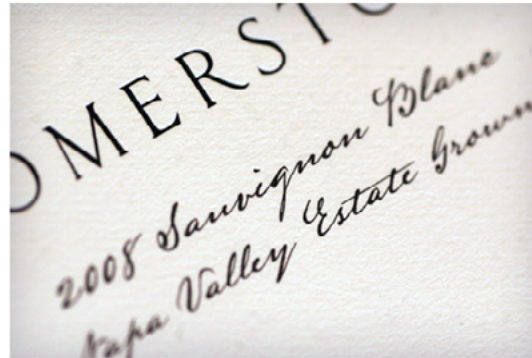 OMERSTO
2008 Sauvignon Blanc
Napa Valley Estate Grown